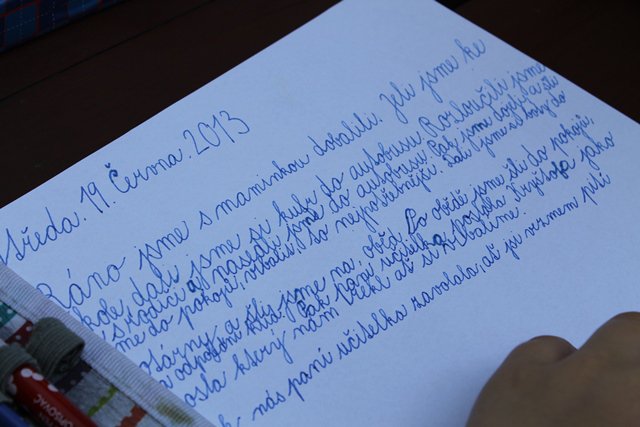 Středa. 19. Června. 2013
Ráno jsme s maminkou dobalili. Jeli jsme ke
škole, dali jsme si kufr do autobusu. Rozloučili jsme
s rodiči a nasedli jsme do autobusu. Pak jsme dojeli a šli
me do pokojů, vibalit, to nejpotřebnější. Dali jsme si boby do
botárny a šli jsme na oběd. Po obědě jsme šli do pokojů
a odpolední klid. Pak paní učitelka
osla který nám řekl ať si zbalíme.
nás paní učitelka zavolala, ať si vezmem pití